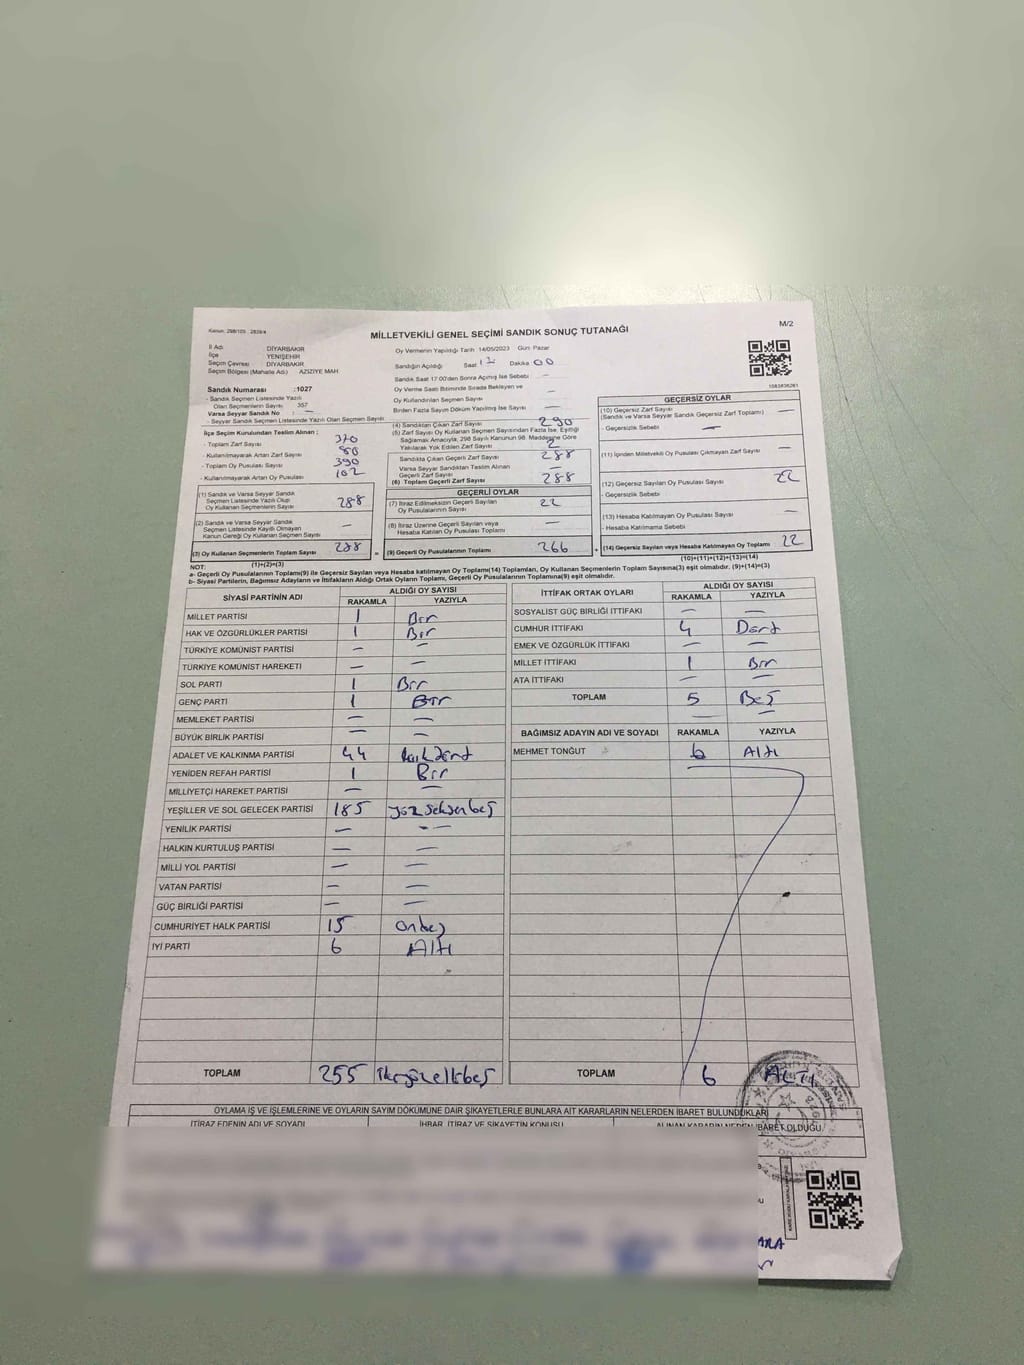 Kanun: 298/105 , 2839/4
MİLLETVEKİLİ GENEL SEÇİMİ SANDIK SONUÇ TUTANAĞI
M/2
İl Adı DİYARBAKIR
İlçe YENİŞEHİR
Seçim Çevresi DİYARBAKIR
Seçim Bölgesi (Mahalle Adı) AZİZİYE MAH
Sandık Numarası :1027
- Sandık Seçmen Listesinde Yazılı
Olan Seçmenlerin Sayısı 357
Varsa Seyyar Sandık No : —
- Seyyar Sandık Seçmen Listesinde Yazılı Olan Seçmen Sayısı
İlçe Seçim Kurulundan Teslim Alınan ;
- Toplam Zarf Sayısı 370
- Kullanılmayarak Artan Zarf Sayısı 80
- Toplam Oy Pusulası Sayısı 390
- Kullanılmayarak Artan Oy Pusulası 102
(1) Sandık ve Varsa Seyyar Sandık
Seçmen Listesinde Yazılı Olup
Oy Kullanan Seçmenlerin Sayısı 288
(2) Sandık ve Varsa Seyyar Sandık
Seçmen Listesinde Kayıtlı Olmayan
Kanun Gereği Oy Kullanan Seçmen Sayısı —
(3) Oy Kullanan Seçmenlerin Toplam Sayısı 288
(1)+(2)=(3)
Oy Vermenin Yapıldığı Tarih 14/05/2023 Gün: Pazar
Sandığın Açıldığı Saat 17 Dakika 00
Sandık Saat 17:00'den Sonra Açılmış İse Sebebi —
Oy Verme Saati Bitiminde Sırada Bekleyen ve
Oy Kullandırılan Seçmen Sayısı —
Birden Fazla Sayım Döküm Yapılmış İse Sayısı —
(4) Sandıktan Çıkan Zarf Sayısı 290
(5) Zarf Sayısı Oy Kullanan Seçmen Sayısından Fazla İse, Eşitliği
Sağlamak Amacıyla, 298 Sayılı Kanunun 98. Maddesine Göre
Yakılarak Yok Edilen Zarf Sayısı 2
Sandıkta Çıkan Geçerli Zarf Sayısı 288
Varsa Seyyar Sandıktan Teslim Alınan
Geçerli Zarf Sayısı —
(6) Toplam Geçerli Zarf Sayısı 288
GEÇERLİ OYLAR
(7) İtiraz Edilmeksizin Geçerli Sayılan
Oy Pusulalarının Sayısı 22
(8) İtiraz Üzerine Geçerli Sayılan veya
Hesaba Katılan Oy Pusulası Toplamı —
= (9) Geçerli Oy Pusulalarının Toplamı 266
1083836261
GEÇERSİZ OYLAR
(10) Geçersiz Zarf Sayısı —
(Sandık ve Varsa Seyyar Sandık Geçersiz Zarf Toplamı)
- Geçersizlik Sebebi —
(11) İçinden Milletvekili Oy Pusulası Çıkmayan Zarf Sayısı —
(12) Geçersiz Sayılan Oy Pusulası Sayısı 22
- Geçersizlik Sebebi
(13) Hesaba Katılmayan Oy Pusulası Sayısı —
- Hesaba Katılmama Sebebi
+ (14) Geçersiz Sayılan veya Hesaba Katılmayan Oy Toplamı 22
(10)+(11)+(12)+(13)=(14)
NOT:
a- Geçerli Oy Pusulalarının Toplamı(9) ile Geçersiz Sayılan veya Hesaba katılmayan Oy Toplamı(14) Toplamları, Oy Kullanan Seçmenlerin Toplam Sayısına(3) eşit olmalıdır. (9)+(14)=(3)
b- Siyasi Partilerin, Bağımsız Adayların ve İttifakların Aldığı Ortak Oyların Toplamı, Geçerli Oy Pusulalarının Toplamına(9) eşit olmalıdır.
SİYASİ PARTİNİN ADI ALDIĞI OY SAYISI
RAKAMLA YAZIYLA
MİLLET PARTİSİ 1 Bir
HAK VE ÖZGÜRLÜKLER PARTİSİ 1 Bir
TÜRKİYE KOMÜNİST PARTİSİ — —
TÜRKİYE KOMÜNİST HAREKETİ — —
SOL PARTİ 1 Bir
GENÇ PARTİ 1 Bir
MEMLEKET PARTİSİ — —
BÜYÜK BİRLİK PARTİSİ — —
ADALET VE KALKINMA PARTİSİ 44 kırkdört
YENİDEN REFAH PARTİSİ 1 Bir
MİLLİYETÇİ HAREKET PARTİSİ — —
YEŞİLLER VE SOL GELECEK PARTİSİ 185 yüzseksenbeş
YENİLİK PARTİSİ — —
HALKIN KURTULUŞ PARTİSİ — —
MİLLİ YOL PARTİSİ — —
VATAN PARTİSİ — —
GÜÇ BİRLİĞİ PARTİSİ — —
CUMHURİYET HALK PARTİSİ 15 onbeş
İYİ PARTİ 6 Altı
TOPLAM 255 ikiyüzellibeş
İTTİFAK ORTAK OYLARI ALDIĞI OY SAYISI
RAKAMLA YAZIYLA
SOSYALİST GÜÇ BİRLİĞİ İTTİFAKI — —
CUMHUR İTTİFAKI 4 Dört
EMEK VE ÖZGÜRLÜK İTTİFAKI — —
MİLLET İTTİFAKI 1 Bir
ATA İTTİFAKI — —
TOPLAM 5 Beş
BAĞIMSIZ ADAYIN ADI VE SOYADI RAKAMLA YAZIYLA
MEHMET TONĞUT 6 Altı
TOPLAM 6 ALTI
OYLAMA İŞ VE İŞLEMLERİNE VE OYLARIN SAYIM DÖKÜMÜNE DAİR ŞİKAYETLERLE BUNLARA AİT KARARLARIN NELERDEN İBARET BULUNDUKLARI
İTİRAZ EDENİN ADI VE SOYADI İHBAR, İTİRAZ VE ŞİKAYETİN KONUSU ALINAN KARARIN NEDEN İBARET OLDUĞU